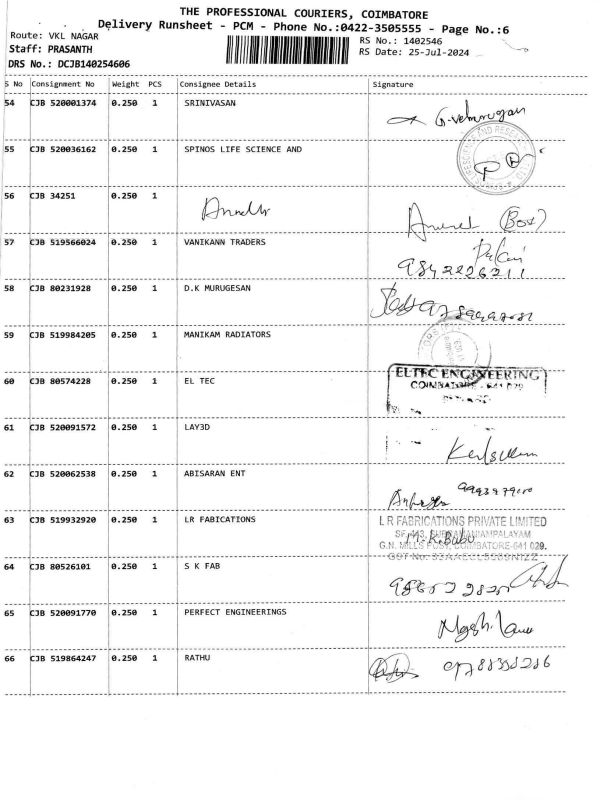 THE PROFESSIONAL COURIERS, COIMBATORE
Delivery Runsheet - PCM - Phone No.:0422-3505555 - Page No.:6
Route: VKL NAGAR
RS No.: 1402546
Staff: PRASANTH
RS Date: 25-Jul-2024
DRS No.: DCJB140254606
S No Consignment No Weight PCS Consignee Details Signature
54 CJB 520001374 0.250 1 SRINIVASAN
55 CJB 520036162 0.250 1 SPINOS LIFE SCIENCE AND
56 CJB 34251 0.250 1
57 CJB 519566024 0.250 1 VANIKANN TRADERS
9842226211
58 CJB 80231928 0.250 1 D.K MURUGESAN
59 CJB 519984205 0.250 1 MANIKAM RADIATORS
60 CJB 80574228 0.250 1 EL TEC
ELTEC ENGINEERING
COIMBATORE - 641 029
61 CJB 520091572 0.250 1 LAY3D
62 CJB 520062538 0.250 1 ABISARAN ENT
63 CJB 519932920 0.250 1 LR FABICATIONS
L R FABRICATIONS PRIVATE LIMITED
G.N. MILLS POST, COIMBATORE-641 029.
64 CJB 80526101 0.250 1 S K FAB
65 CJB 520091770 0.250 1 PERFECT ENGINEERINGS
66 CJB 519864247 0.250 1 RATHU